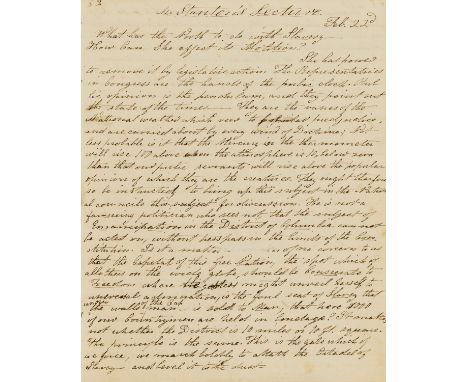 52
Mr Stanton's Lecture.
Feb. 22d
What has the North to do with Slavery
How can She effect its Abolition?
She has power
to remove it by legislative action. The Representatives
in Congress are the hands of the public clock. Pub
lic opinion is the pendulum, which they point out
the state of the times. They are the vanes of the
National weather
and are carried about by every wind of Doctrine;
less probable is it that the Mercury in the thermometer
will rise 100 above when the atmosphere is 10 below zero
than that our public servants will rise above the popular
opinions of which they are the creatures. They might therefore
so be instructed to bring up this subject in the Nation
al councils this subject for discussion. He is not a
farseeing politician who sees not that the subject of
Emancipation in the District of Columbia can not
be acted on, without
stitution. Is it nothing of no concern to us
that the Capital of this free Nation, the spot which of
all others on the wide globe, should be consecrated to
Freedom where the goddess might unveil herself to
universal adoration, is the foul seat of Slavery that
under the walls of the man is sold to man, that here 6000
of our Countrymen are held in bondage? It matters
not whether the District is 10 miles or 10 ft. square.
The principle is the same. This is the gate which if
we force, we march boldly to attack the Citadel of
Slavery and level it to the dust